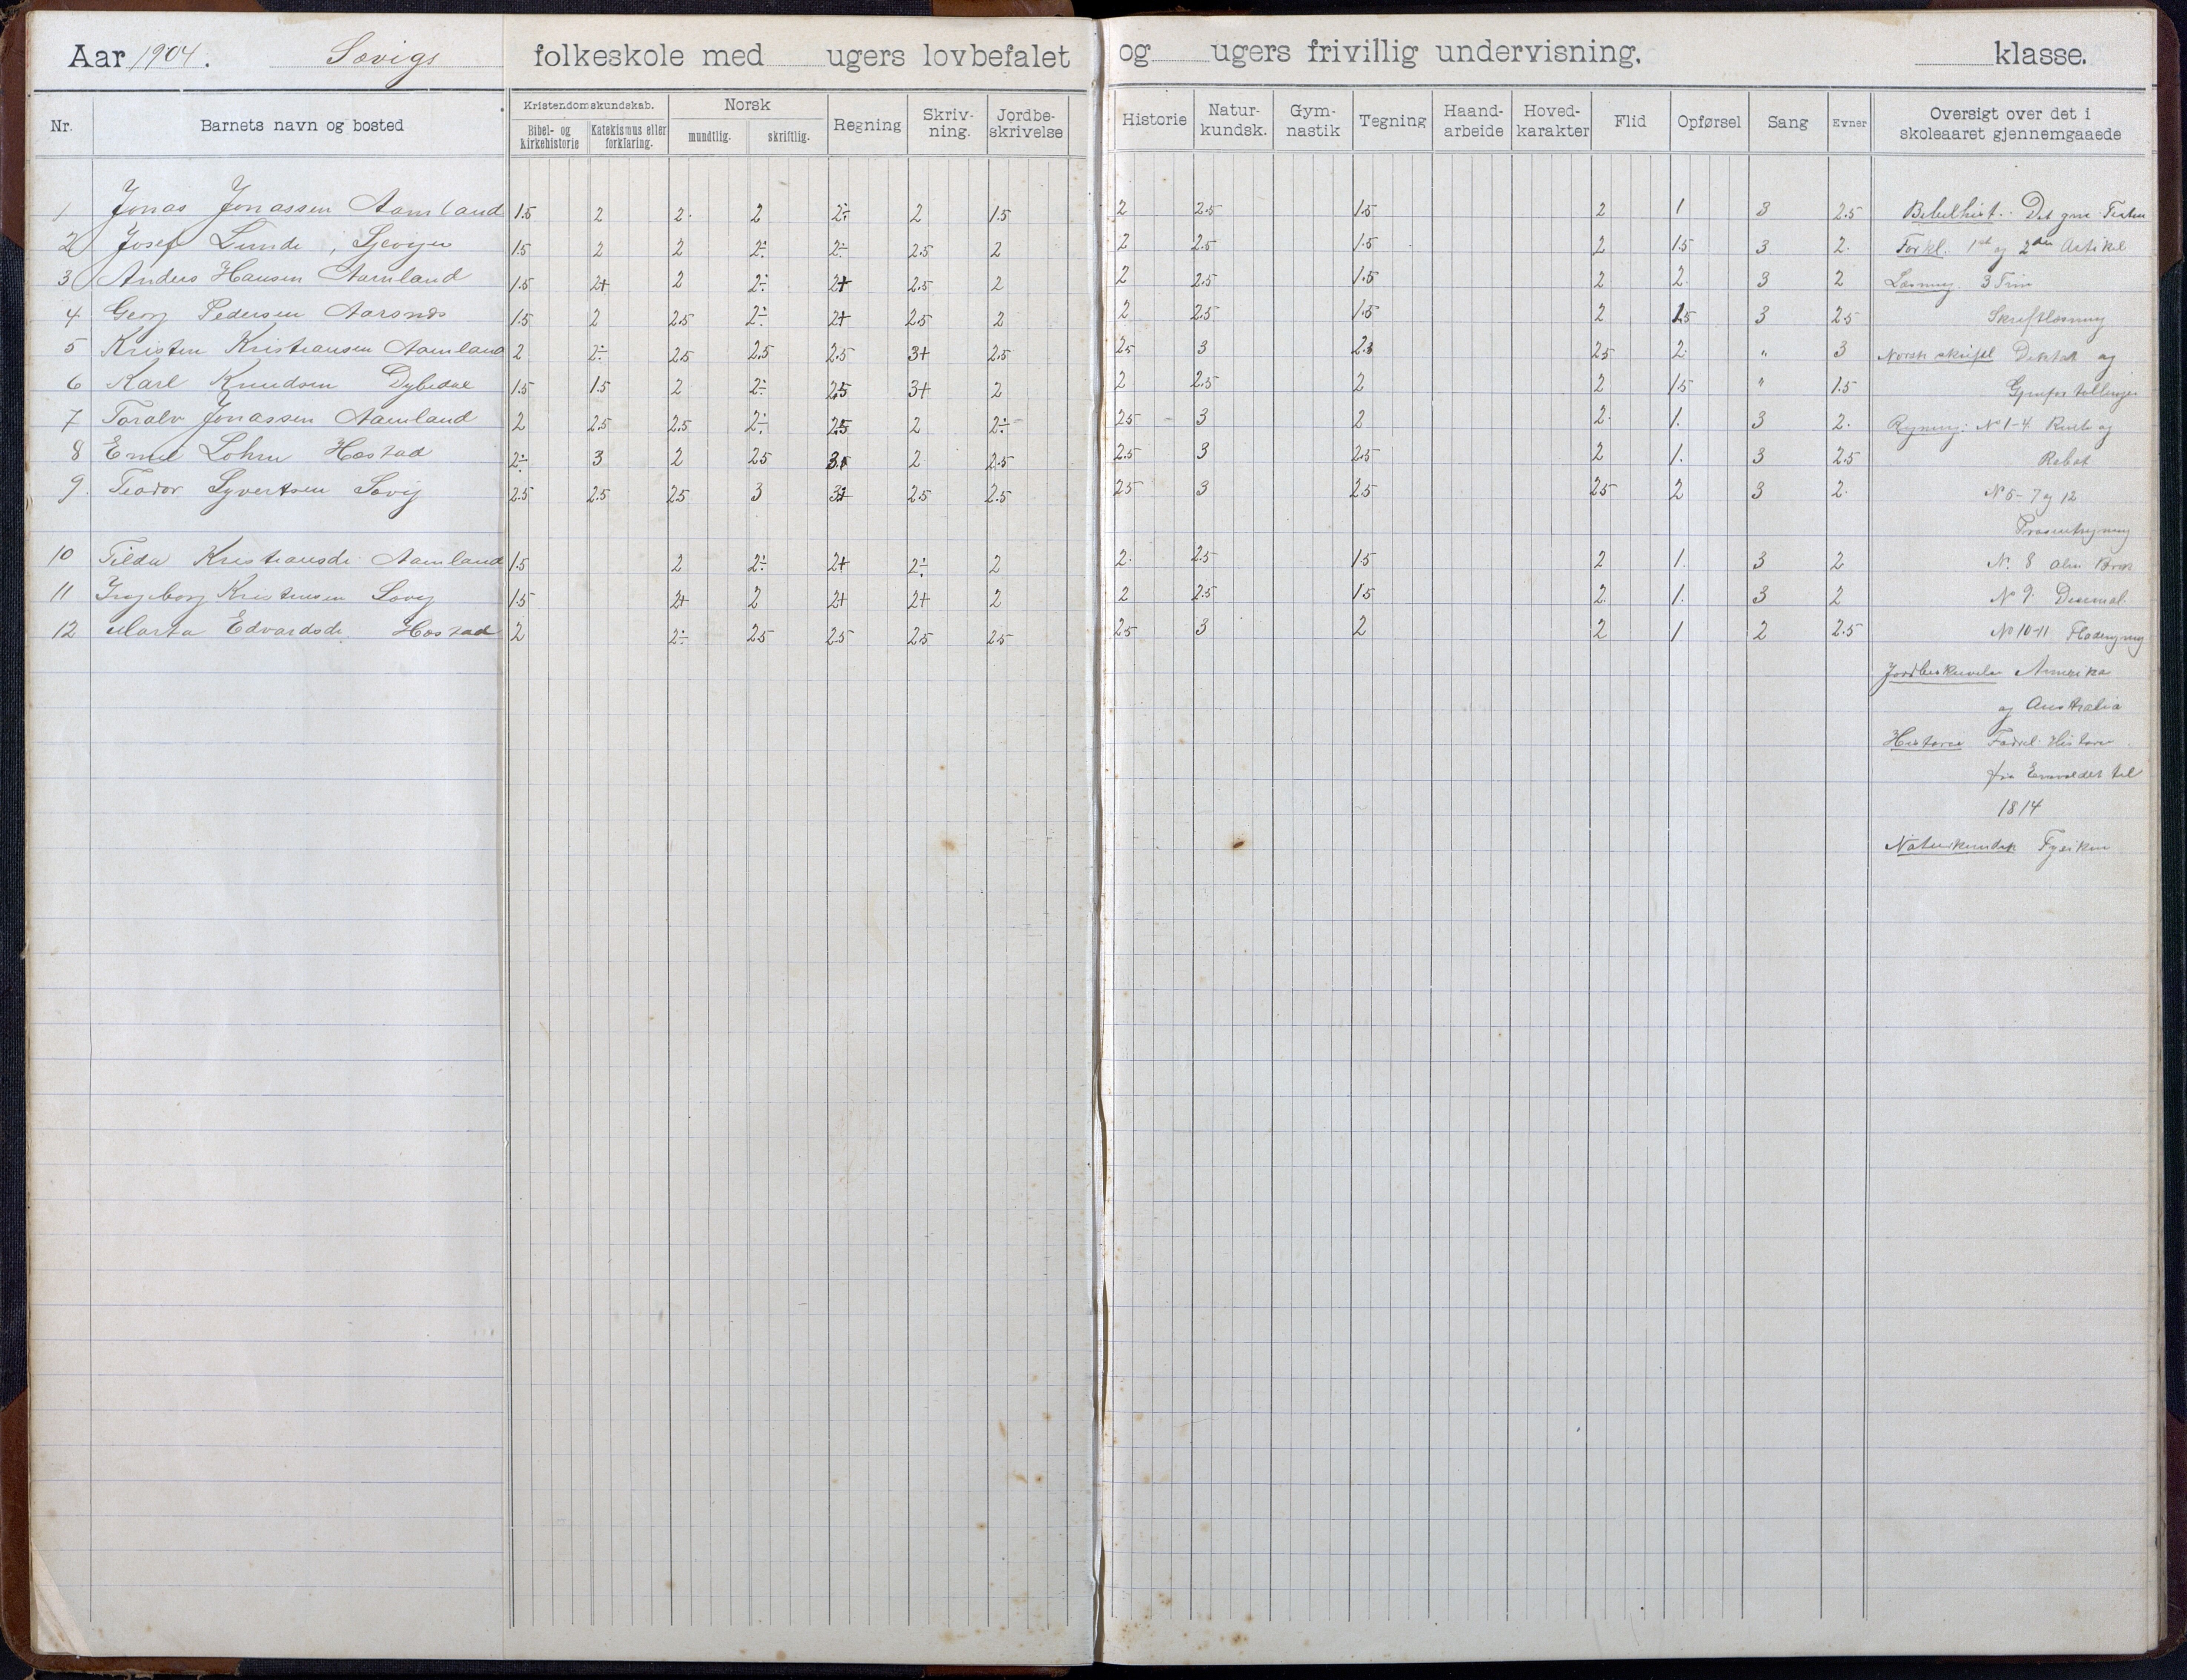 Aar 1904. Søvigs folkeskole med ugers lovbefalet og ugers frivillig undervisning. klasse.
Nr. Barnets navn og bosted Kristendomskundskab. Norsk Regning Skriv-ning. Jordbe-skrivelse Historie Natur-kundsk. Gym-nastik Tegning Haand-arbeide Hoved-karakter Flid Opførsel Sang Evner Oversigt over det i skoleaaret gjennemgaaede
Bibel- og Kirkehistorie Katekismus eller forklaring. mundtlig. skriftlig.
1 Jonas Jonassen Aamland 1.5 2 2. 2 2÷ 2 1.5 2 2.5 1.5 2 1 3 2.5 Bibelhist. Det gml Testm
2 Josef Lunde, 1.5 2 2 2÷ 2÷ 2.5 2 2 2.5 1.5 2 1.5 3 2. Forkl. 1ste og 2den Artikel
3 Anders Hansen Aamland 1.5 2+ 2 2÷ 2+ 2.5 2 2 2.5 1.5 2 2. 3 2 Læsning. 3 Trin
4 Georg Pedersen Aarsnes 1.5 2 2.5 2÷ 2+ 2.5 2 2 2.5 1.5 2 1.5 3 2.5 Skriftlæsning
5 Kristen Kristiansen Aamland 2 2÷ 2.5 2.5 2.5 3+ 2.5 2.5 3 2.5 2. " 3 Norsk skriftl Diktat og
6 Karl Knudsen Dybedal 1.5 1.5 2 2÷ 2.5 3+ 2 2 2.5 2 2 1.5 " 1.5 Gjenfortellinger
7 Toralv Jonassen Aamland 2 2.5 2.5 2÷ 2.5 2 2÷ 2.5 3 2 2. 1. 3 2. Regning: No 1-4 Rente og
8 Emil Lohne Høstad 2÷ 3 2 2.5 2 2.5 2.5 3 2.5 2 1. 3 2.5 Rabat
9. Teodor Syvertsen Søvig 2.5 2.5 2.5 3 2.5 2.5 2.5 3 2.5 2.5 2 3 2. No 5-7 og 12
Prosentregning
10 Tilda Kristiansdt. Aamland 1.5 2 2÷ 2+ 2÷ 2 2. 2.5 1.5 2 1. 3 2 N. 8 alm Brøk
11 Ingeborg Kristensen Søvig 1.5 2+ 2 2+ 2+ 2 2 2.5 1.5 2. 1. 3 2 No 9. Desimal.
12 Marta Edvardsdt. Høstad 2 2÷ 2.5 2.5 2.5 2.5 2.5 3 2 2 1 2 2.5 No 10-11 Fladeregning
Jordbeskrivelse Amerika
og Australia
Historie Fædrel. Historie
fra Enevældet til
1814
Naturkundsk Fysiken